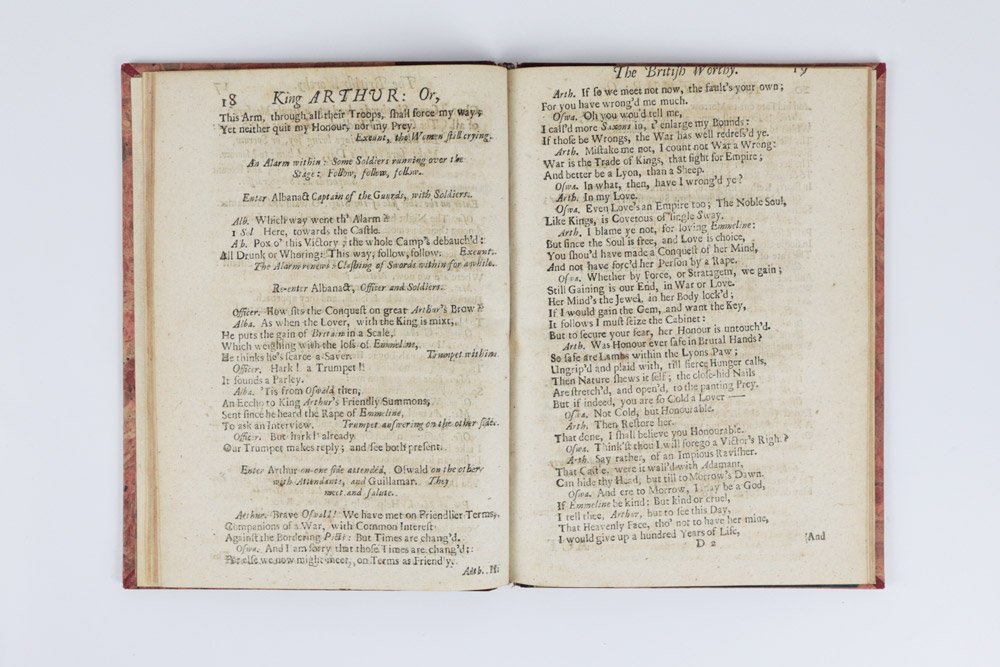 18 King ARTHUR: Or,
This Arm, through all their Troops, shall force my way,
Yet neither quit my Honour, nor my Prey.
Exeunt, the Women still crying.
An Alarm within: Some Soldiers running over the
Stage: Follow, follow, follow.
Enter Albanact Captain of the Guards, with Soldiers.
Alb. Which way went th' Alarm?
1 Sol Here, towards the Castle.
Alb. Pox o' this Victory; the whole Camp's debauch'd:
All Drunk or Whoring: This way, follow, follow. Exeunt.
The Alarm renews: Clashing of Swords within for a while.
Re-enter Albanact, Officer and Soldiers.
Officer. How sits the Conquest on great Arthur's Brow?
Alba. As when the Lover, with the King is mixt,
He puts the gain of Britain in a Scale,
Which weighing with the loss of Emmeline,
He thinks he's scarce a Saver. Trumpet within.
Officer. Hark! a Trumpet!!
It sounds a Parley.
Alba. 'Tis from Oswald then,
An Eccho to King Arthur's Friendly Summons,
Sent since he heard the Rape of Emmeline,
To ask an Interview. Trumpet answering on the other side.
Officer. But hark! already
Our Trumpet makes reply; and see both present.
Enter Arthur on one side attended, Oswald on the other
with Attendants, and Guillamar. They
meet and salute.
Arthur. Brave Oswald! We have met on Friendlier Terms,
Companions of a War, with Common Interest
Against the Bordering Picts: But Times are chang'd.
Oswa. And I am sorry that those Times are chang'd:
For else we now might meet, on Terms as Friendly.
Arth. If
The British Worthy. 19
Arth. If so we meet not now, the fault's your own;
For you have wrong'd me much.
Oswa. Oh you wou'd tell me,
I call'd more Saxons in, t' enlarge my Bounds:
If those be Wrongs, the War has well redress'd ye.
Arth. Mistake me not, I count not War a Wrong:
War is the Trade of Kings, that fight for Empire;
And better be a Lyon, than a Sheep.
Oswa. In what, then, have I wrong'd ye?
Arth. In my Love.
Oswa. Even Love's an Empire too; The Noble Soul,
Like Kings, is Covetous of single Sway.
Arth. I blame ye not, for loving Emmeline:
But since the Soul is free, and Love is choice,
You shou'd have made a Conquest of her Mind,
And not have forc'd her Person by a Rape.
Oswa. Whether by Force, or Stratagem, we gain;
Still Gaining is our End, in War or Love.
Her Mind's the Jewel, in her Body lock'd;
If I would gain the Gem, and want the Key,
It follows I must seize the Cabinet:
But to secure your fear, her Honour is untouch'd.
Arth. Was Honour ever safe in Brutal Hands?
So safe are Lambs within the Lyons Paw;
Ungrip'd and plaid with, till fierce Hunger calls,
Then Nature shews it self; the close-hid Nails
Are stretch'd, and open'd, to the panting Prey.
But if indeed, you are so Cold a Lover——
Oswa. Not Cold, but Honourable.
Arth. Then Restore her.
That done, I shall believe you Honourable.
Oswa. Think'st thou I will forego a Victor's Right?
Arth. Say rather, of an Impious Ravisher.
That Castle, were it wall'd with Adamant,
Can hide thy Head, but till to Morrow's Dawn.
Oswa. And ere to Morrow, I may be a God,
If Emmeline be kind: But kind or cruel,
I tell thee, Arthur, but to see this Day,
That Heavenly Face, tho' not to have her mine,
I would give up a hundred Years of Life,
D 2 And